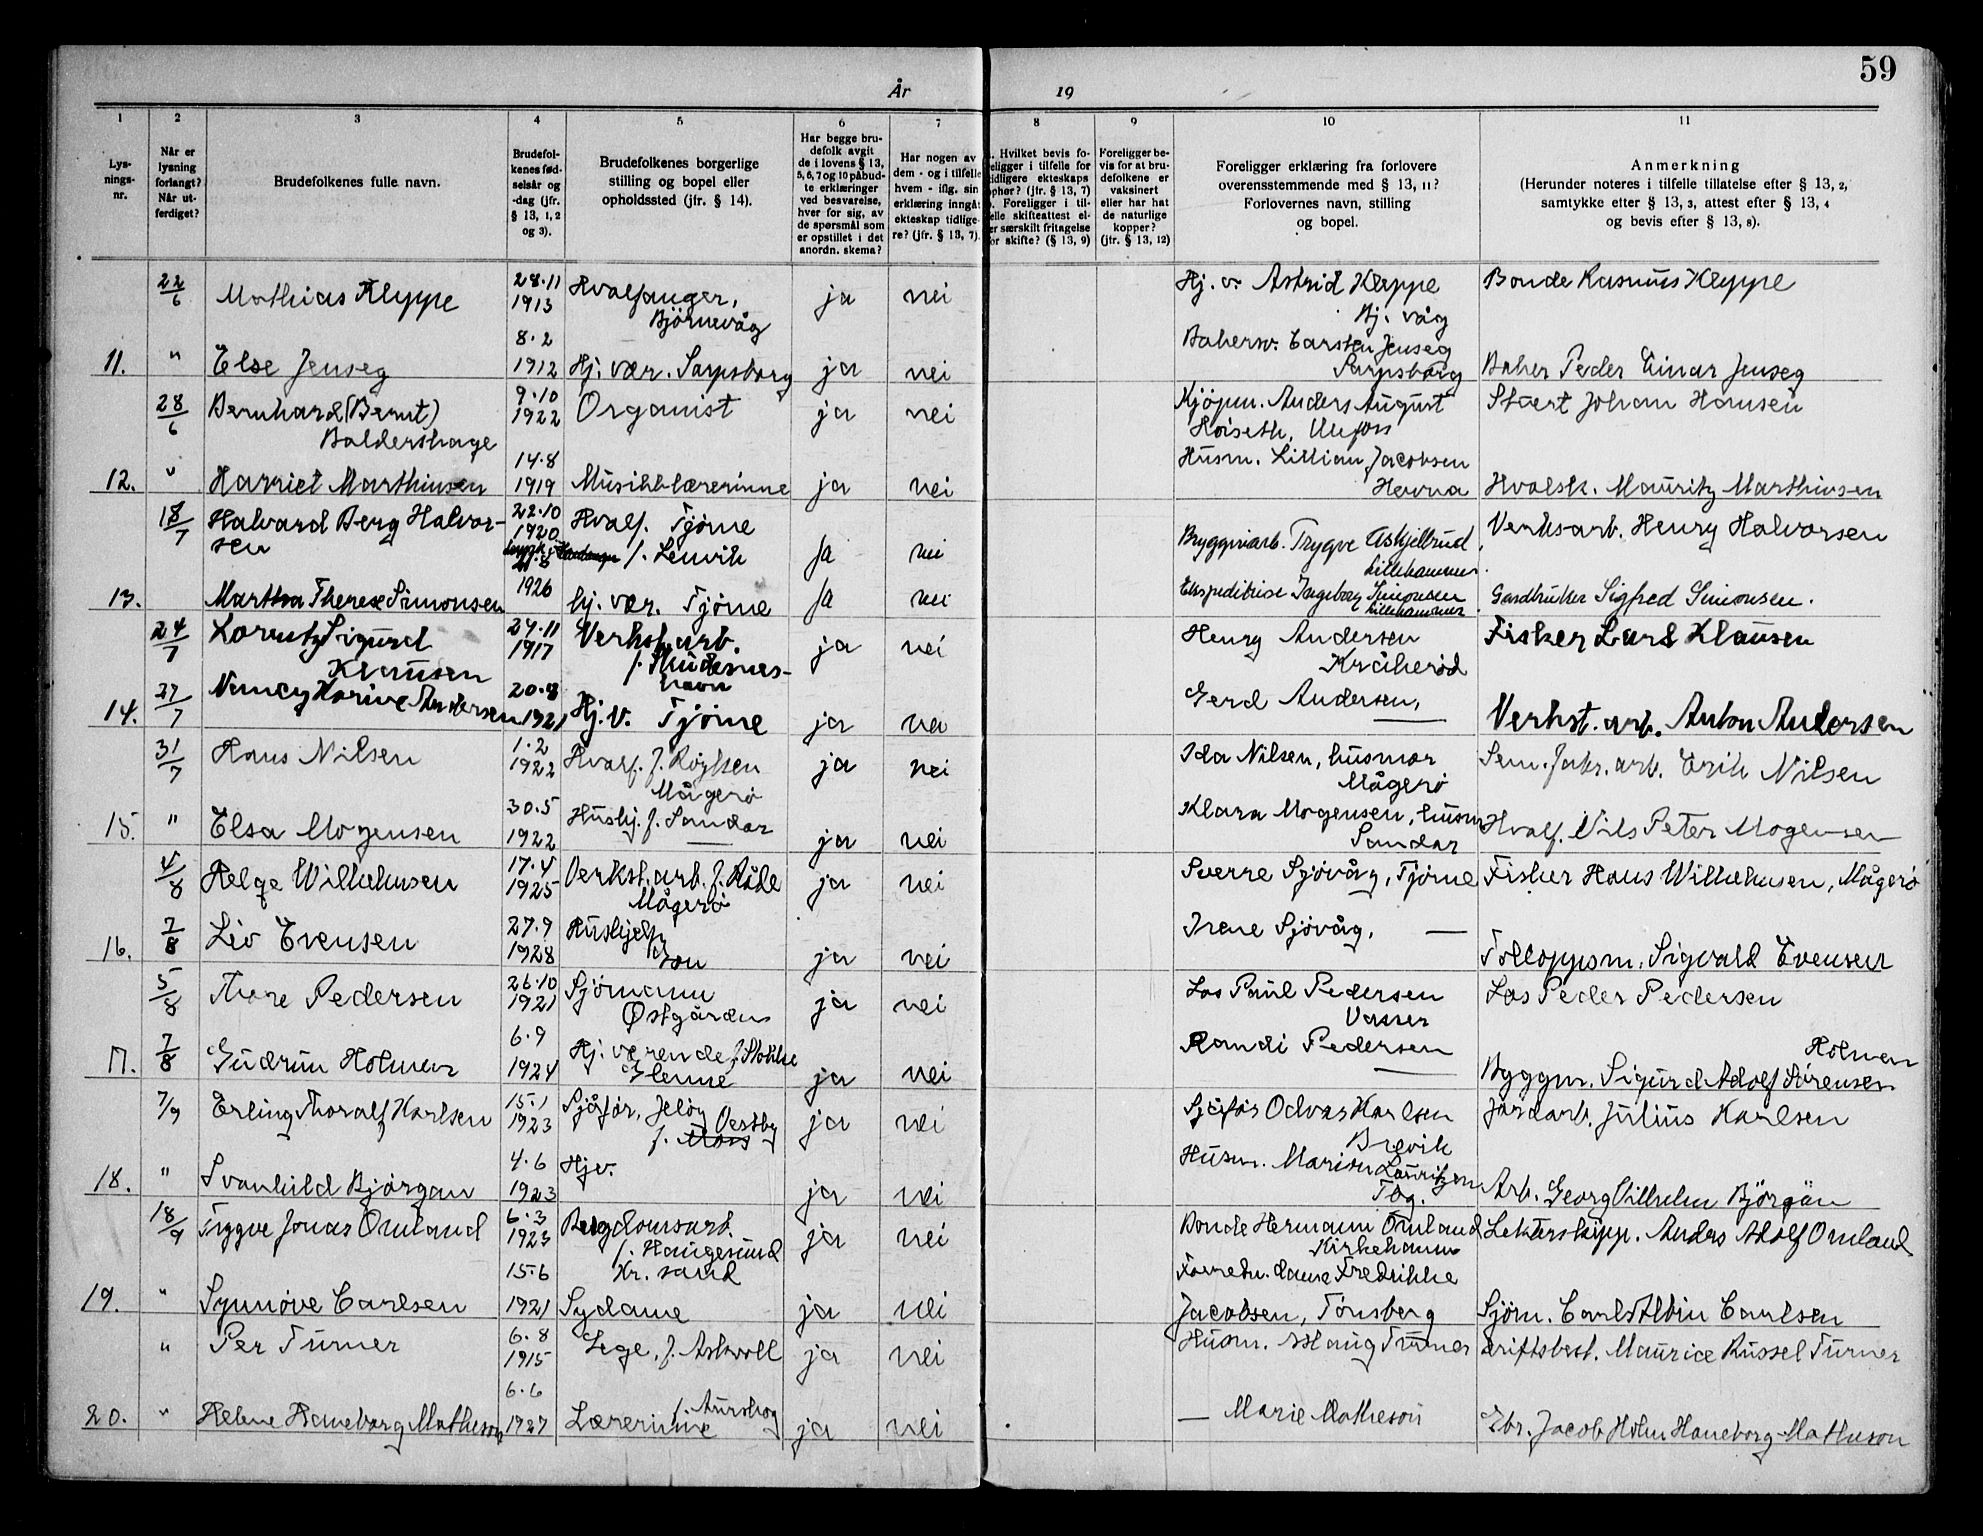 59
År 19
1 2 3 4 5 6 7 8 9 10 11
Lys-
nings-
nr.
Når er
lysning
forlangt?
Når ut-
ferdiget?
Brudefolkenes fulle navn.
Brudefol-
kenes fød-
selsår og
-dag (jfr.
§ 13, 1, 2
og 3).
Brudefolkenes borgerlige
stilling og bopel eller
opholdssted (jfr. § 14).
Har begge bru-
defolk avgit
de i lovens § 13,
5, 6, 7 og 10 påbud-
te erklæringer
ved besvarelse,
hver for sig, av
de spørsmål som
er opstillet i det
anordn. skema?
Har nogen av
dem - og i tilfelle
hvem - iflg. sin
erklæring inngåt
ekteskap tidlige-
re? (jfr. § 13, 7).
. Hvilket bevis fo-
religger i tilfelle for
tidligere ekteskaps
ophør? (jfr. § 13, 7)
. Foreligger i til-
felle skifteattest el-
er særskilt fritagelse
for skifte? (§ 13, 9)
Foreligger be-
vis for at bru-
defolkene er
vaksinert
eller har hat
de naturlige
kopper?
(jfr. § 13, 12)
Foreligger erklæring fra forlovere
overensstemmende med § 13, 11?
Forlovernes navn, stilling
og bopel.
Anmerkning
(Herunder noteres i tilfelle tillatelse efter § 13, 2,
samtykke etter § 13, 3, attest efter § 13, 4
og bevis efter § 13, 8).
22/6 Mathias Kleppe 28.11 1913 Hvalfanger, Bjørnevåg ja nei Hj. v. Astrid Kleppe Bj. våg Bonde Rasmus Kleppe
11. " Else Jenseg 8.2 1912 Hj. vær. Sarpsborg ja nei Bakersv. Carsten Jenseg Sarpsborg Baker Peder Einar Jenseg
28/6 Bernhard (Bernt) Baldershage 9.10 1922 Organist ja nei Kjøpm. Anders August Hoiseth, Stuert Johan Hansen
12. " Harriet Marthinsen 14.8 1919 Musikklærerinne ja nei Husm. Lillian Jacobsen Hovna Hvalsk. Mauritz Marthinsen
18/7 Halvard Berg Halvor-
sen 22.10 1920 Hvalf. Tjøme f. Lenvik ja nei Byggningarb. Trygve Askjellrud Lillehammer. Verksarb. Henry Halvorsen
13. Martha Therese Simonsen 21.8 1926 hj. vær. Tjøme ja nei Ekspeditrise Ingeborg Simonsen Lillehammer Gardbruker Sigfred Simonsen.
24/7 Lorentz Sigurd Klausen 24.11 1917 Verkst. arb. f. Skudesnes-
havn ja nei Henry Andersen Kråkerød Fisker Lars Klausen
14. 27/7 Nancy Karine Andersen 20.8 1921 Hj. v. Tjøme ja nei Gerd Andersen, — Verkst. arb. Anton Andersen
31/7 Hans Nilsen 1.2 1922 Hvalf. f. Røyken Mågerø ja nei Ida Nilsen, husmor Mågerø Sem. fabr. arb. Erik Nilsen
15. " Elsa Mogensen 30.5 1922 Hushj. f. Sandar — ja nei Klara Mogensen, husm Sandar Hvalf. Nils Peter Mogensen
4/8 Helge Wilhelmsen 17.4 1925 Verkst. arb. f. Råde Mågerø ja nei Sverre Sjövåg, Tjöme Fisker Hans Wilhelmsen, Mågerø
16. 7/8 Liv Evensen 27.9 1928 Hushjelp ja nei Irene Sjövåg, — Tolloppsm. Sigvald Evensen
5/8 Thore Pedersen 26.10 1921 Sjömann Østgården ja nei Los Paul Pedersen Vasser Los Peder Pedersen
17. 7/8 Gudrun Holmen 6.9 1924 Hj. værende f. Stokke Glenne ja nei Randi Pedersen — Byggm. Sigurd Adolf Sørensen Holmen
7/9 Erling Thoralf Karlsen 15.1 1923 Sjåfør, Jeløy f. Moss Vestby ja nei Sjåfør Odvar Karlsen Brevik Jordarb. Julius Karlsen
18. " Svanhild Bjørgan 4.6 1923 Hjv. ja nei Husm. Marion Lauritzen Tbg. Arb. Georg Vilhelm Björgan
18/9 Trygve Jonas Omland 6.3 1923 f. Haugesund Kr. sand ja nei Bonde Hermann Omland Kirkehamn Lekterskipp. Anders Adolf Omland
19. " Synnöve Carlsen 15.6 1921 Sydame ja nei Forretn. dame Fredrikke Jacobsen, Tönsberg Sjøm. Carl Albin Carlsen
" Per Turner 6.8 1915 Lege, f. Askvoll ja nei Husm. Turner Driftsbest. Maurice Russel Turner
20. " Helene Haneborg Matheson 6.6 1927 Lærerinne f. Aurskog ja nei — Marie Matheson Gbr. Jacob Holm Haneborg-Matheson